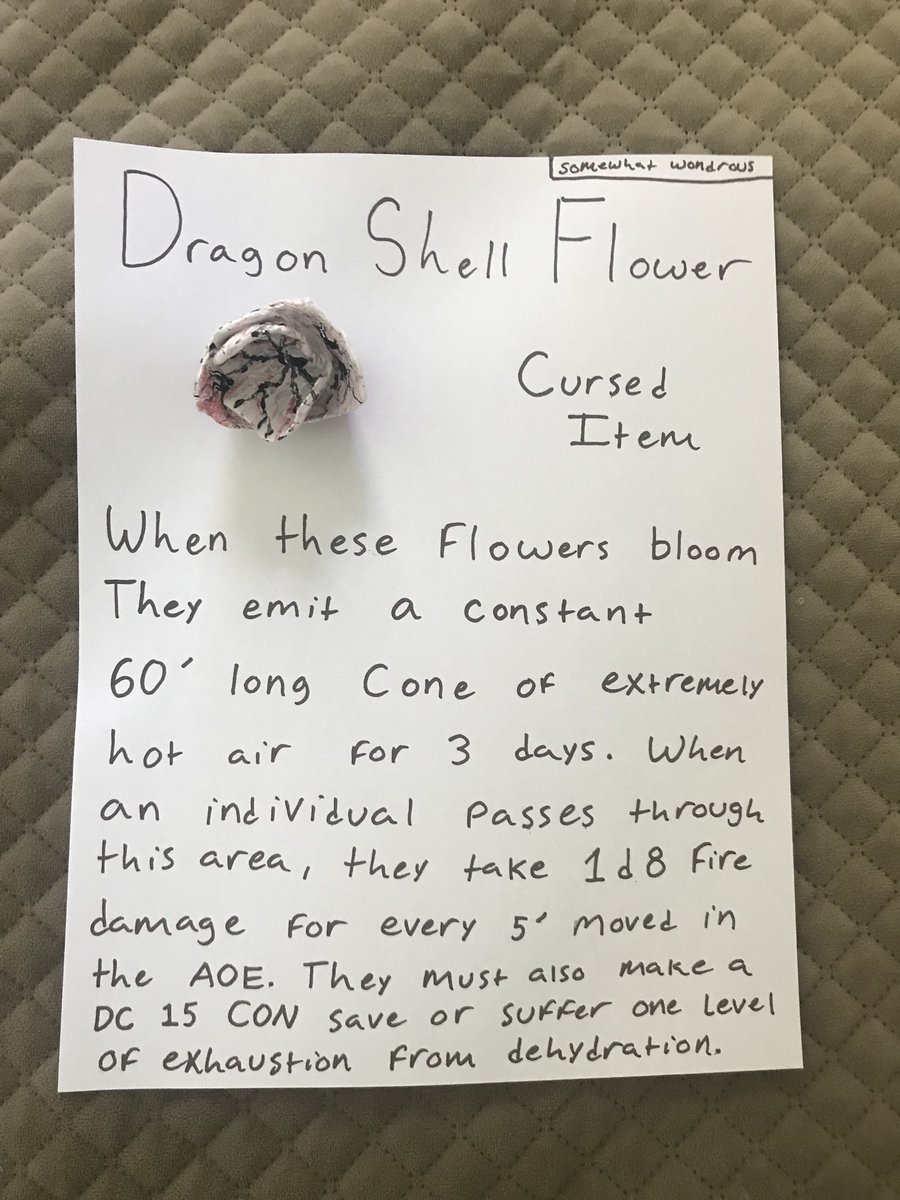 somewhat wondrous
Dragon Shell Flower
Cursed
Item
When these Flowers bloom
They emit a constant
60' long Cone of extremely
hot air for 3 days. When
an individual passes through
this area, they take 1d8 fire
damage for every 5' moved in
the AOE. They must also make a
DC 15 CON save or suffer one level
of exhaustion from dehydration.